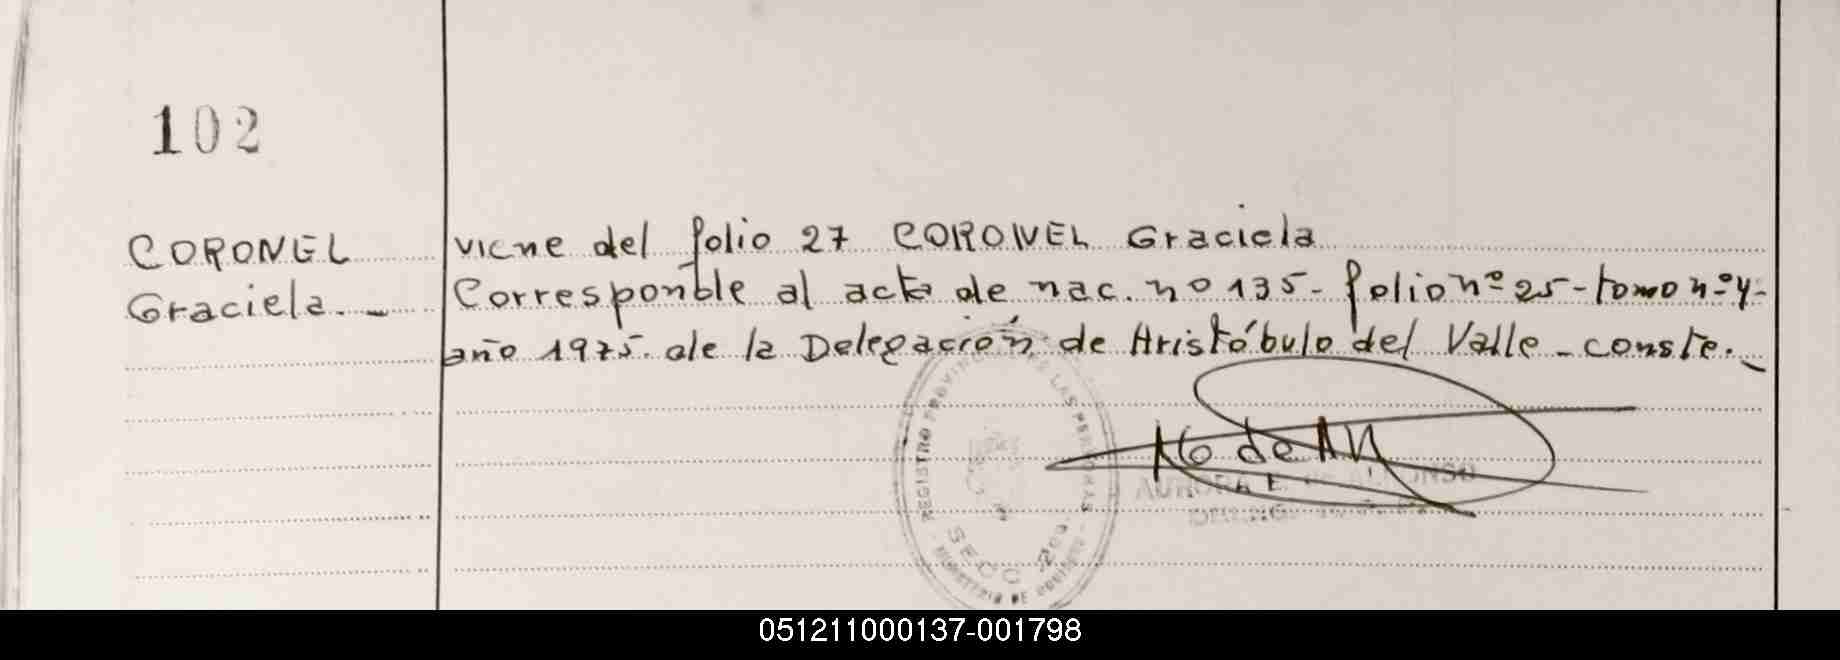 102
CORONEL
Graciela.-
viene del folio 27 CORONEL Graciela
Corresponble al acta de nac. nº 135- folio nº 25- tomo nº 4-
año 1975. de la Delegación de Aristóbulo del Valle - conste.-
REGISTRO PROVINCIAL DE LAS PERSONAS
SECC
MINISTERIO DE GOBIERNO
AURORA E. DE ALFONSO
051211000137-001798